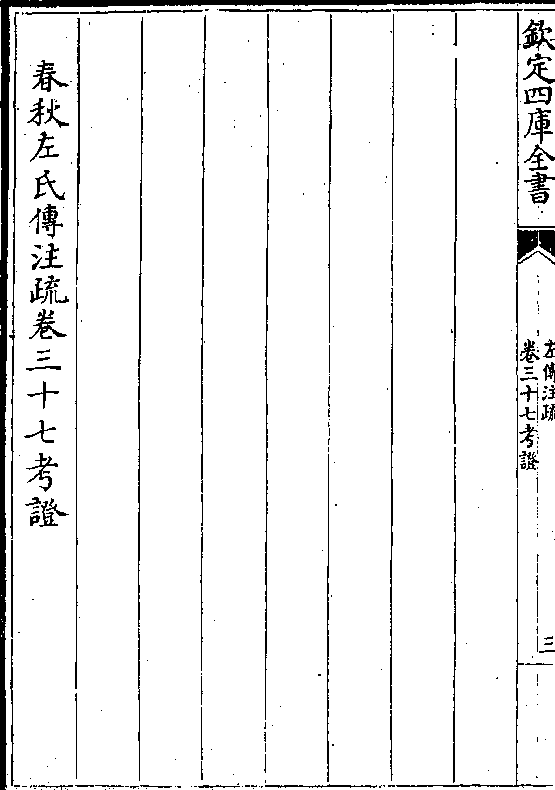 欽定四庫全書
左傳注疏
卷三十七考證
三
春秋左氏傳注疏卷三十七考證